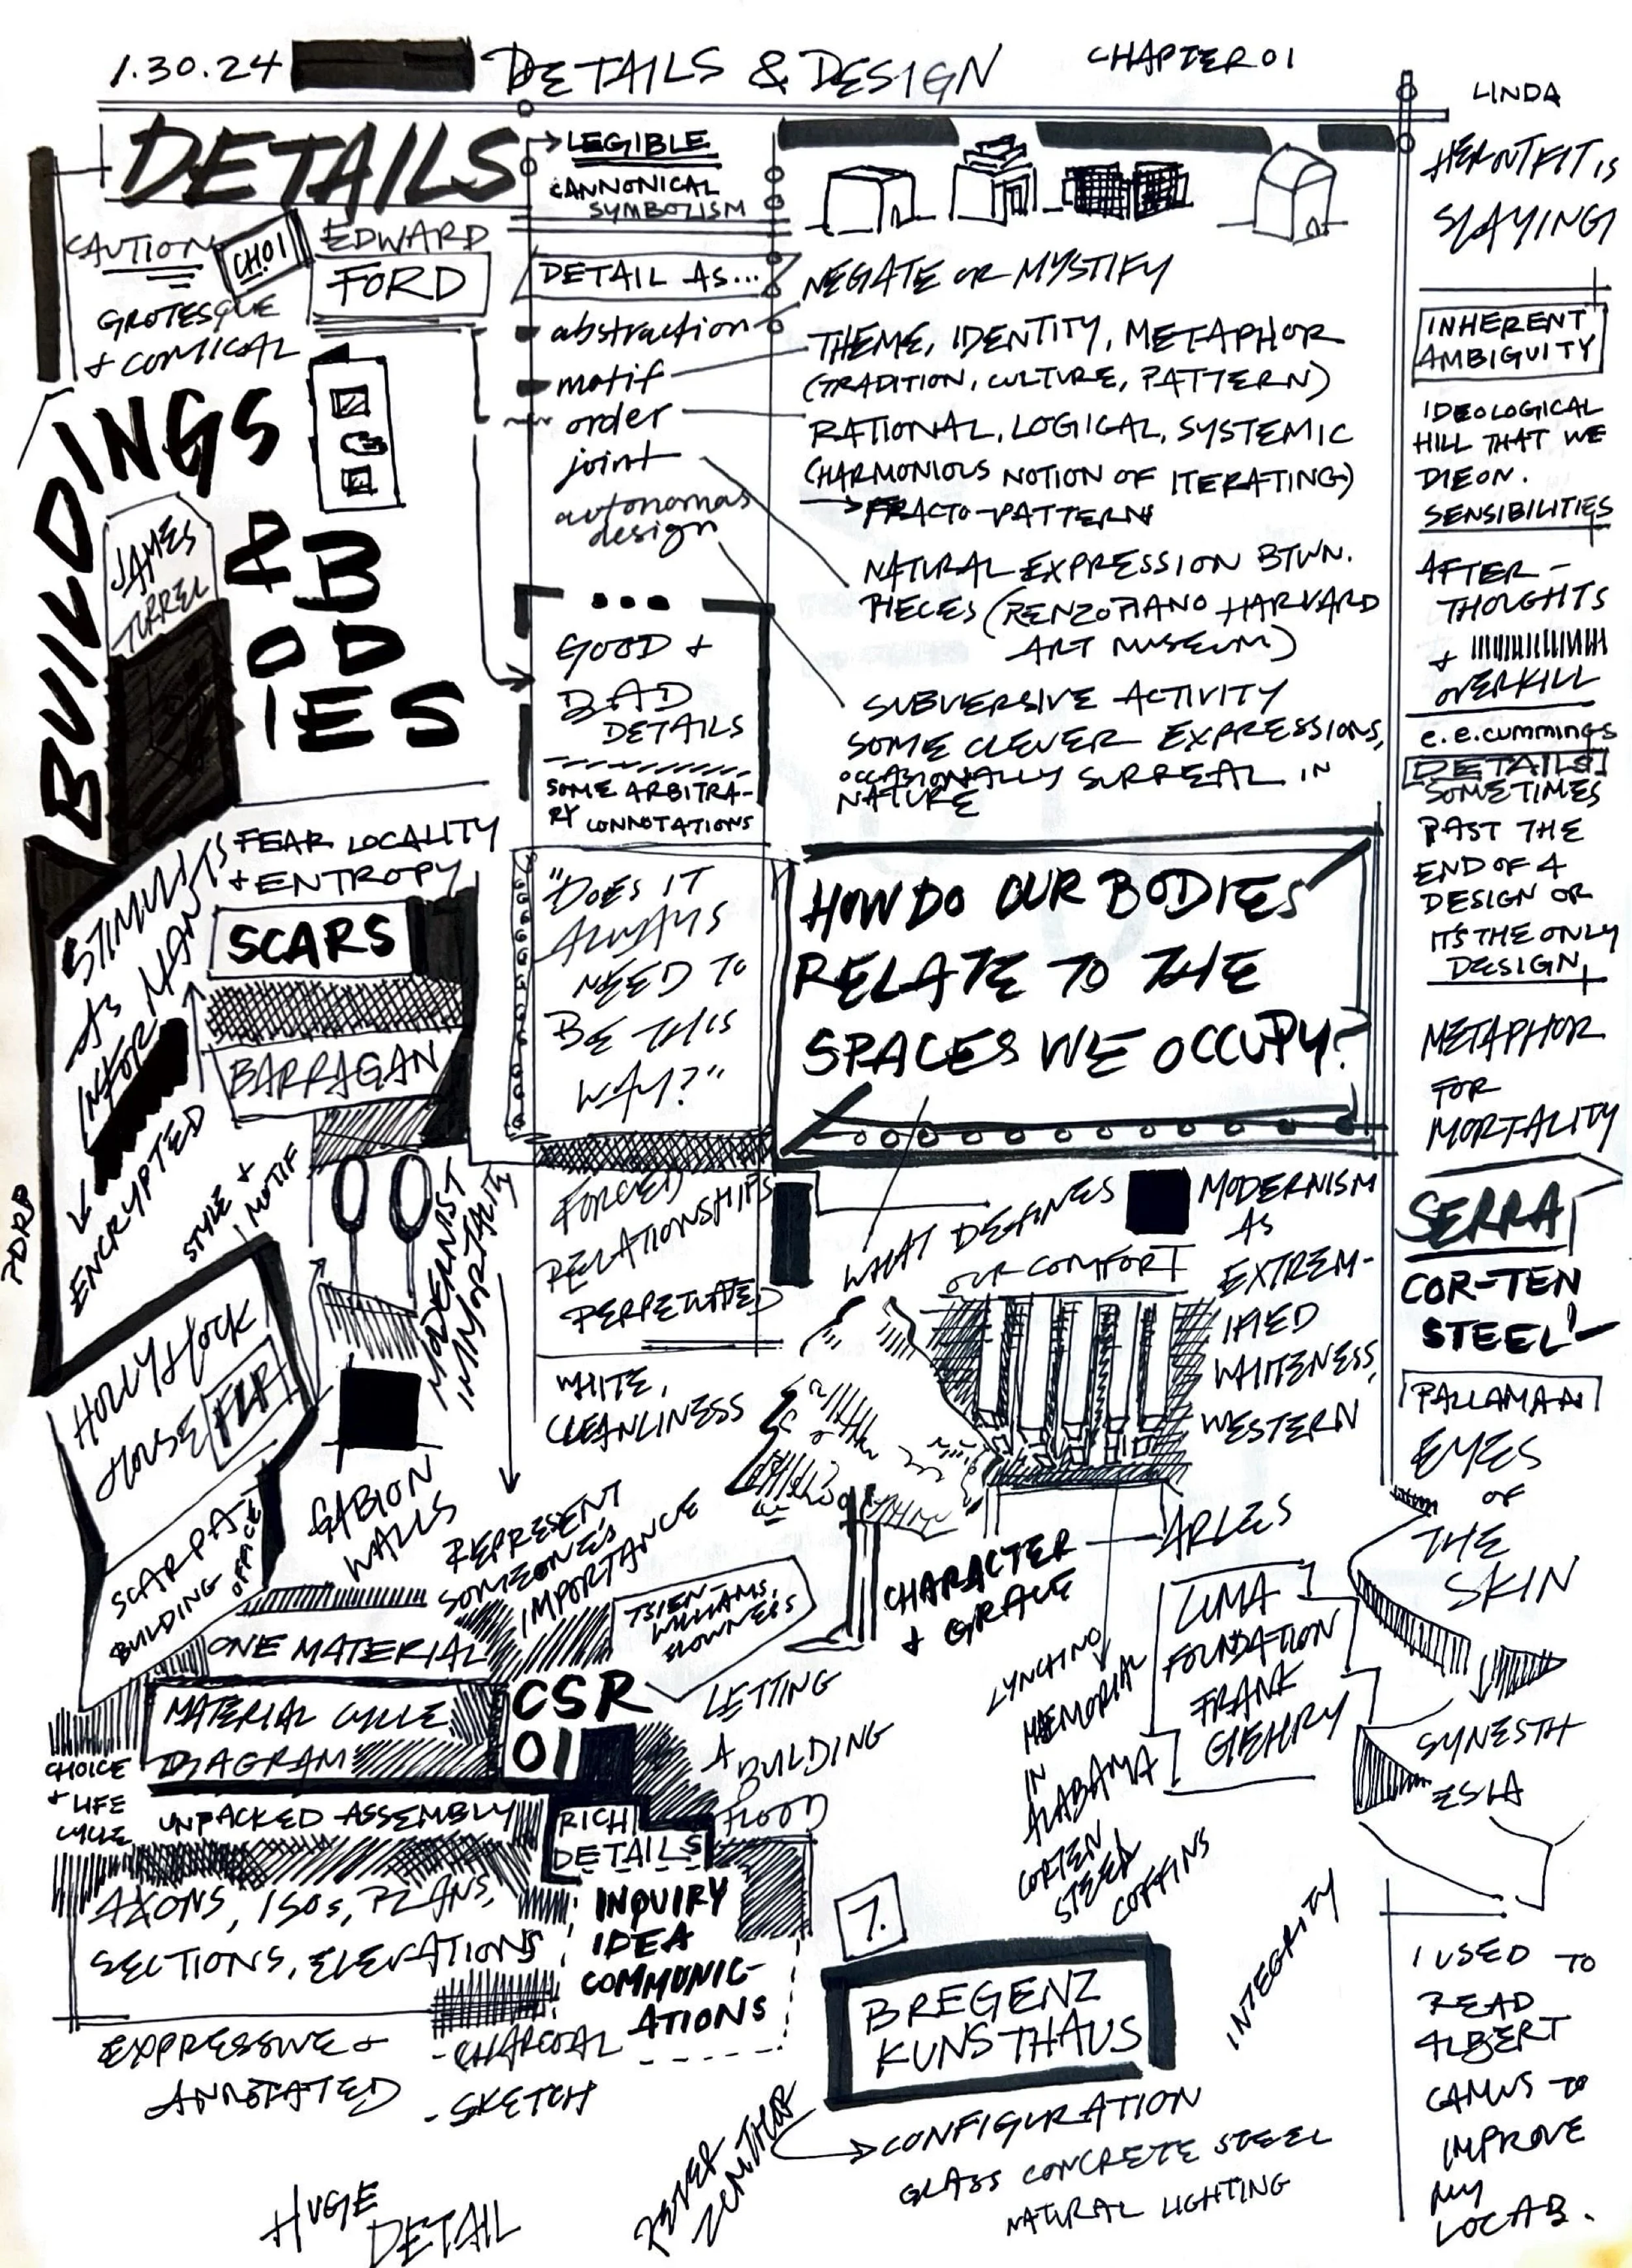 1.30.24
DETAILS & DESIGN
CHAPTER 01
LINDA
HER OUTFIT IS
SLAYING
DETAILS
CAUTION
CH.01
EDWARD
FORD
GROTESQUE
+ COMICAL
BUILDINGS
& BODIES
JAMES
TURREL
LEGIBLE
CANNONICAL
SYMBOLISM
DETAIL AS...
abstraction
motif
order
joint
autonomas
design
NEGATE OR MYSTIFY
THEME, IDENTITY, METAPHOR
(TRADITION, CULTURE, PATTERN)
RATIONAL, LOGICAL, SYSTEMIC
(HARMONIOUS NOTION OF ITERATING)
FRACTO-PATTERN
NATURAL EXPRESSION BTWN.
PIECES (RENZO PIANO HARVARD
ART MUSEUM)
SUBVERSIVE ACTIVITY
SOME CLEVER EXPRESSIONS,
OCCASIONALLY SURREAL IN
NATURE
GOOD +
BAD
DETAILS
SOME ARBITRA-
RY CONNOTATIONS
"DOES IT
ALWAYS
NEED TO
BE THIS
WAY?"
HOW DO OUR BODIES
RELATE TO THE
SPACES WE OCCUPY?
FORCED
RELATIONSHIPS
PERPETUATED
WHITE,
CLEANLINESS
WHAT DEFINES
OUR COMFORT
MODERNISM
AS
EXTREM-
IFIED
WHITENESS,
WESTERN
INHERENT
AMBIGUITY
IDEOLOGICAL
HILL THAT WE
DIE ON.
SENSIBILITIES
AFTER-
THOUGHTS
+
OVERKILL
e.e.cummings
DETAILS
SOMETIMES
PAST THE
END OF A
DESIGN OR
IT'S THE ONLY
DESIGN
METAPHOR
FOR
MORTALITY
SERRA
COR-TEN
STEEL!
PALLAMAA
EYES
OF
THE
SKIN
SYNESTH
ESIA
I USED TO
READ
ALBERT
CAMUS TO
IMPROVE
MY
VOCAB.
STIMULUS
AS
INFOR
MAN
ENCRYPTED
PDRP
FEAR LOCALITY
+ ENTROPY
SCARS
BARRAGAN
STYLE +
MOTIF
MODERNIST
IMMORTALITY
HOLLYHOCK
HOUSE FLR
SCARPA
BUILDING OFFICE
GABION
WALLS
REPRESENT
SOMEONE'S
IMPORTANCE
TSIEN-
WILLIAMS,
SLOWNESS
ONE MATERIAL
MATERIAL CYCLE
DIAGRAM
CSR
01
CHOICE
+ LIFE
CYCLE
UNPACKED ASSEMBLY
RICH
DETAILS
LETTING
A
BUILDING
FLOOD
AXONS, ISOS, PLANS,
SECTIONS, ELEVATIONS
INQUIRY
IDEA
COMMUNIC-
ATIONS
EXPRESSIVE +
ANNOTATED
- CHARCOAL
- SKETCH
HUGE
DETAIL
CHARACTER
+ GRACE
ARLES
LUMA
FOUNDATION
FRANK
GEHRY
LYNCHING
MEMORIAL
IN
ALABAMA
CORTEN
STEEL
COFFINS
INTEGRITY
7.
BREGENZ
KUNSTHAUS
PETER
ZUMTHOR
CONFIGURATION
GLASS CONCRETE STEEL
NATURAL LIGHTING